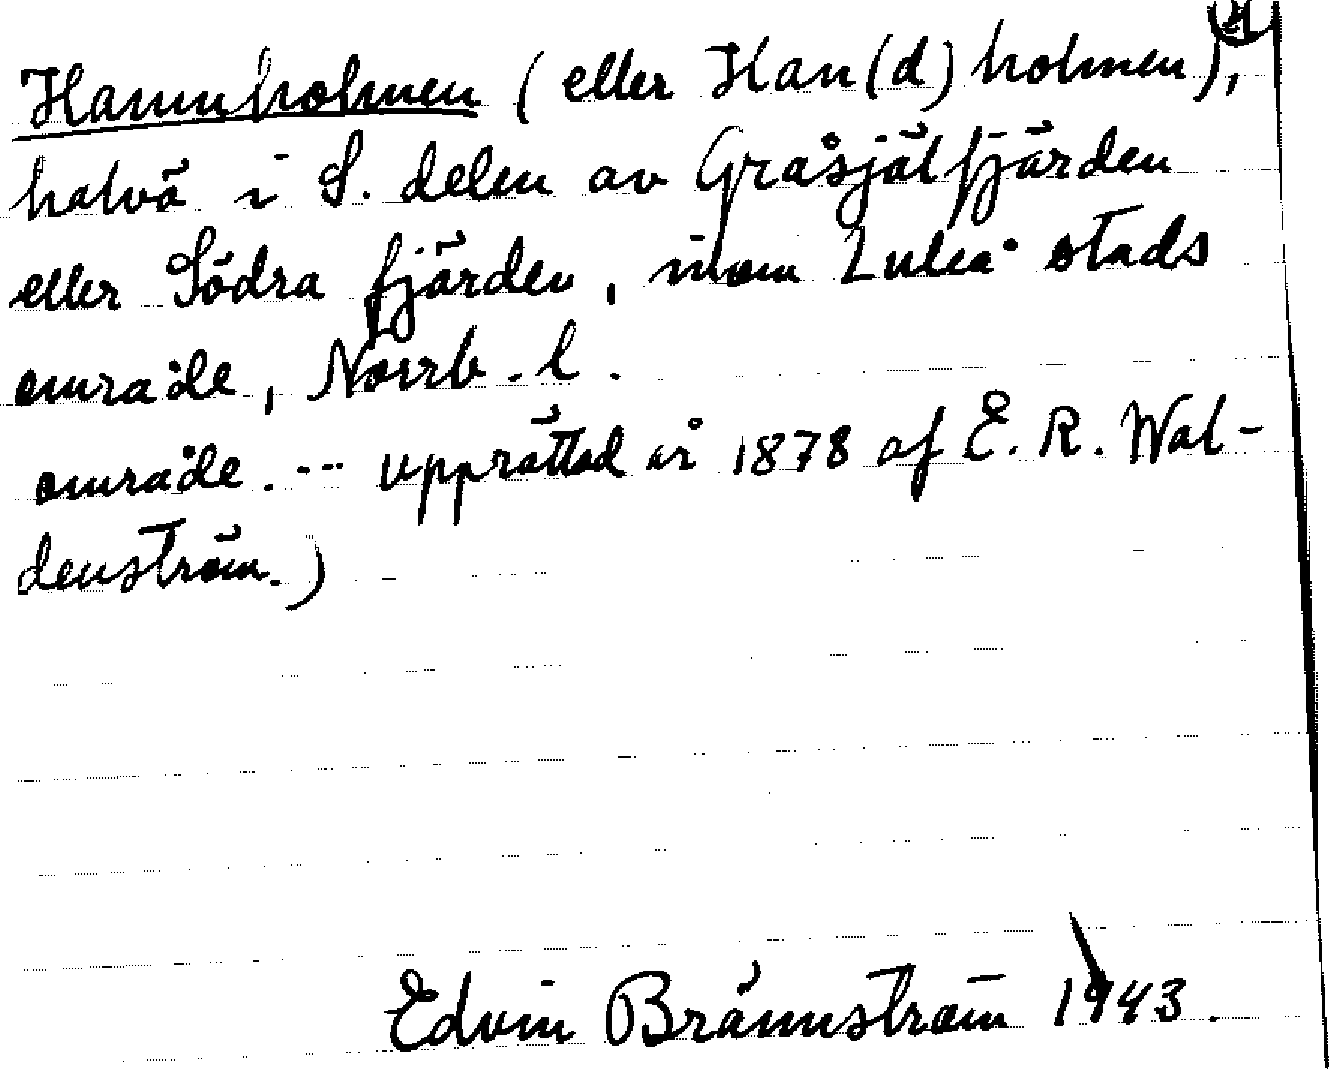 Hannholmen (eller Han(d)holmen),
halvö i S. delen av Gråsjälfjärden
eller Södra fjärden, inom Luleå stads
område, Norrb. l.
område. --- upprättad år 1878 af E. R. Wal-
denström.)
Edvin Brännström 1943.